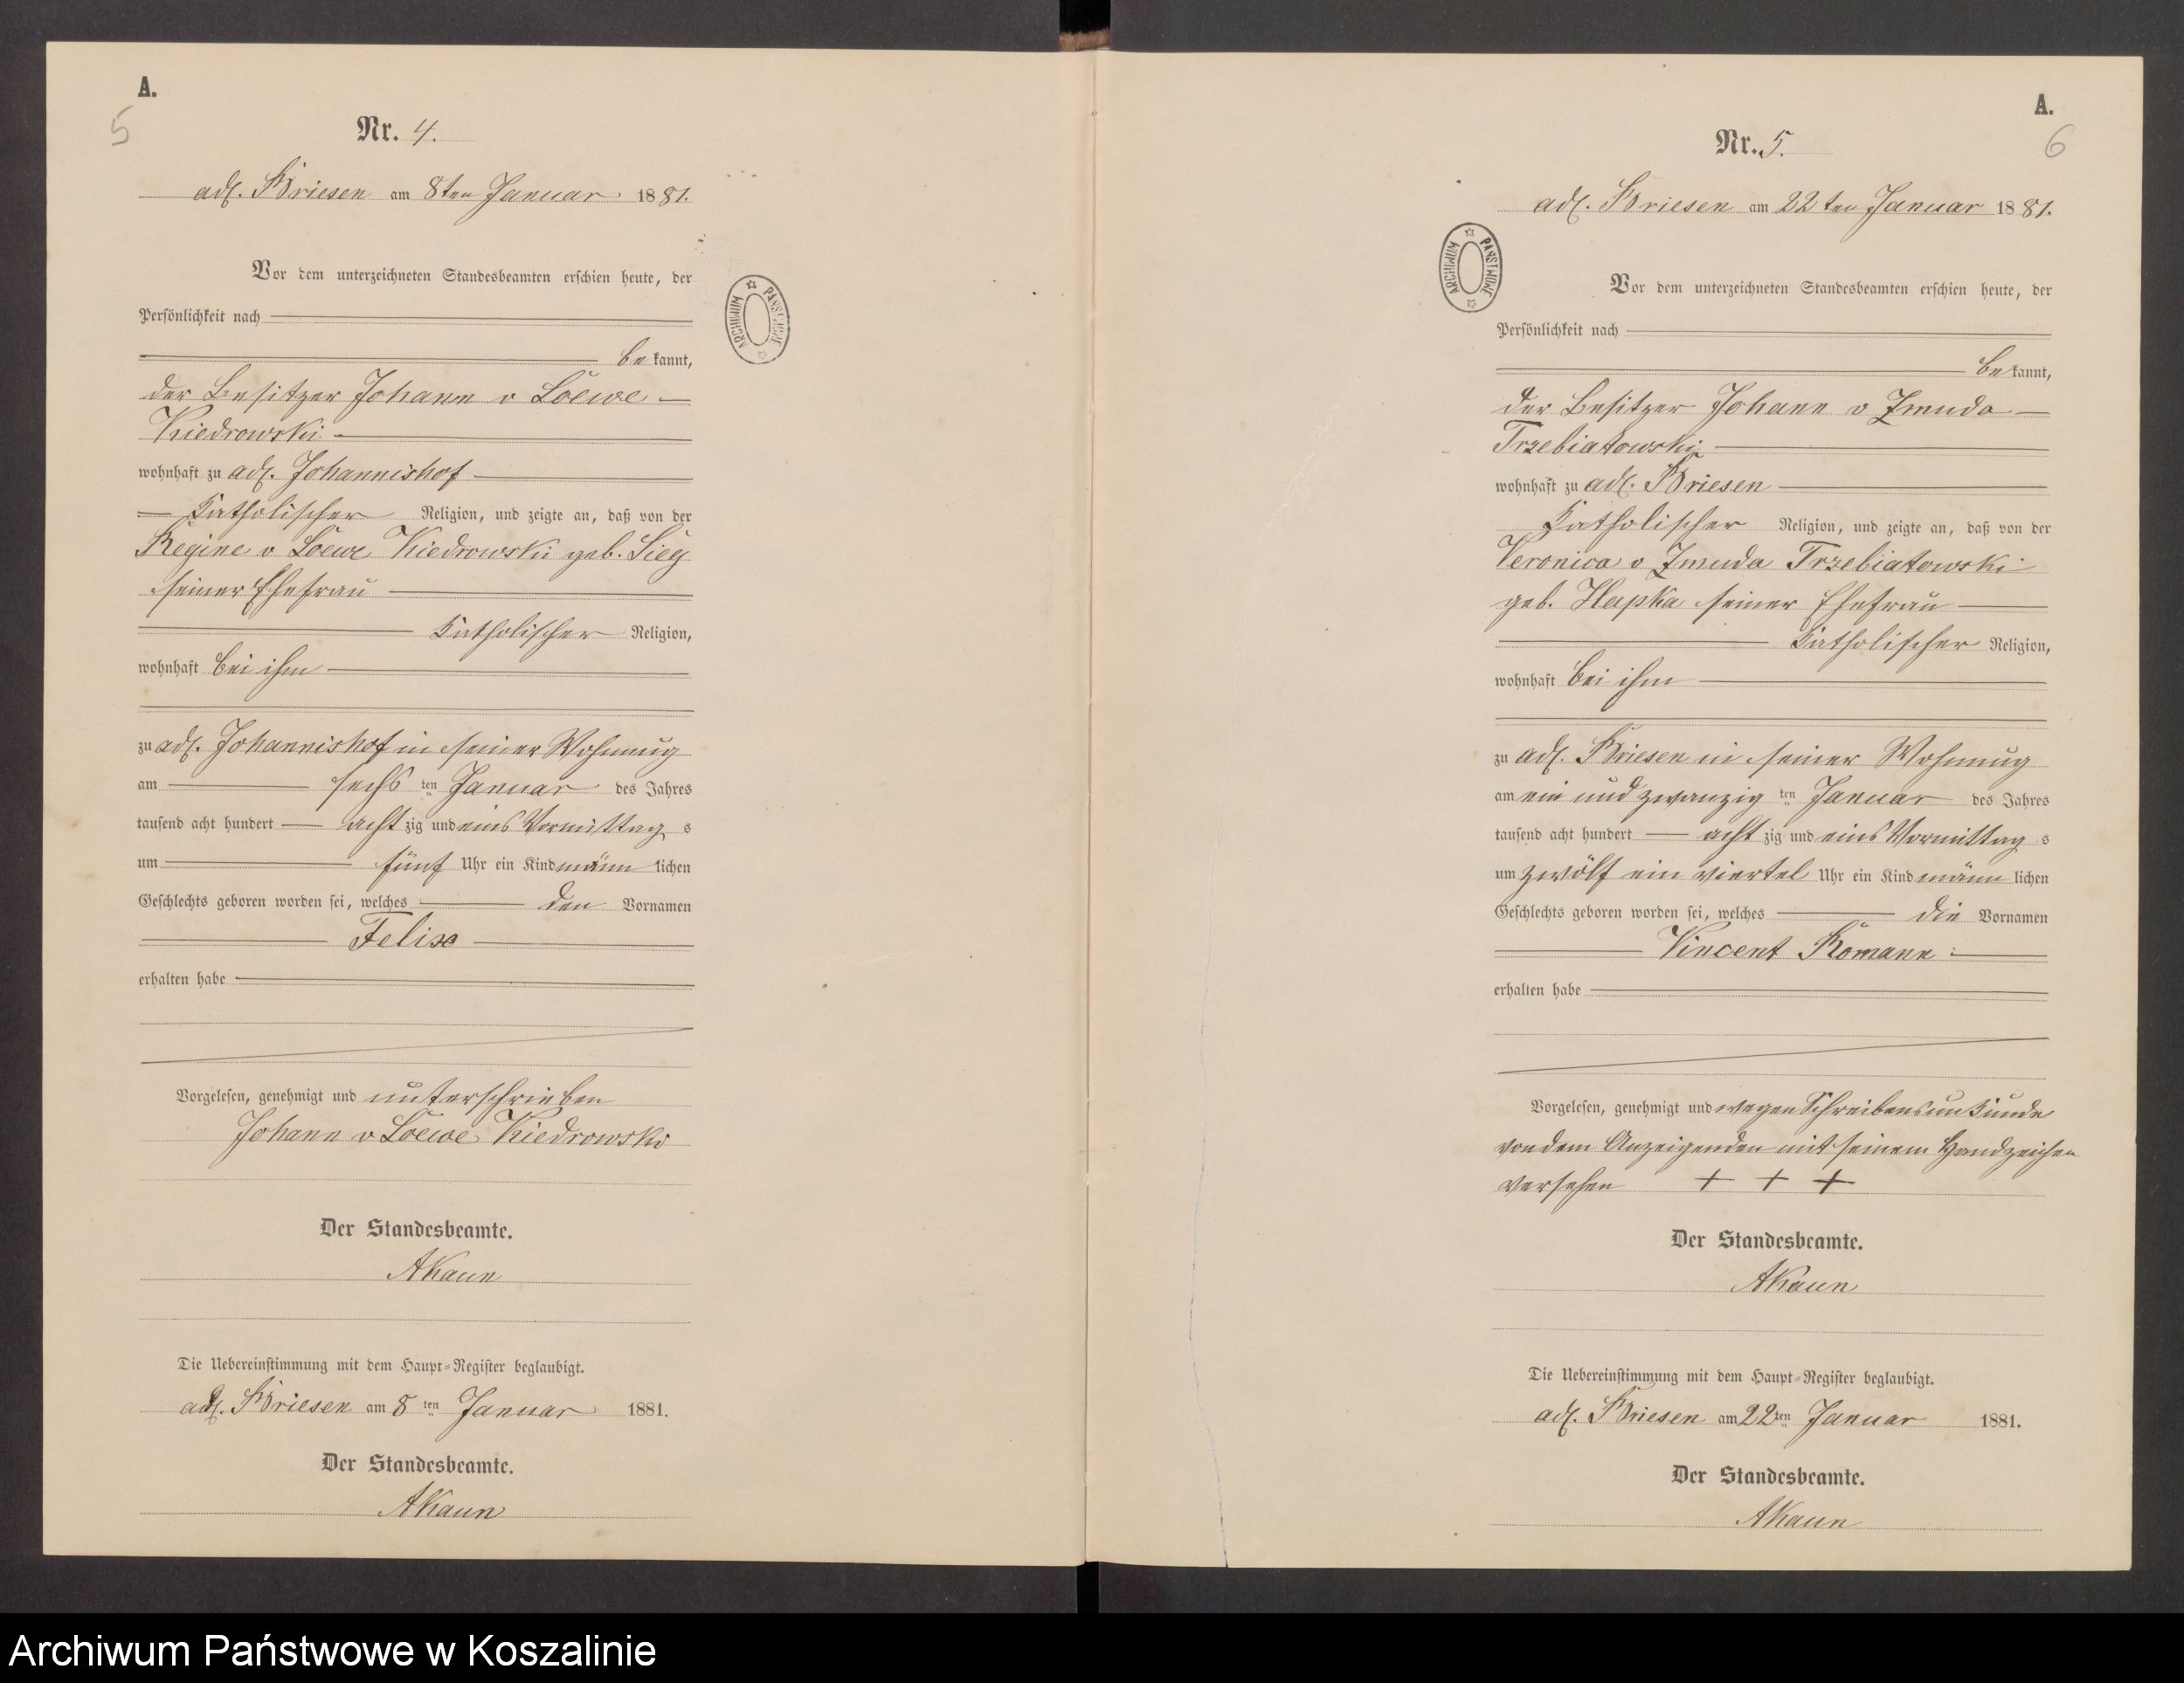 A.
5
Nr. 4.
adl. Briesen am 8ten Januar 1881.
Vor dem unterzeichneten Standesbeamten erschien heute, der
Persönlichkeit nach
bekannt,
der Besitzer Johann v Loewe
Kiedrowski
wohnhaft zu adl. Johannishof
Katholischer Religion, und zeigte an, daß von der
Regine v Loewe Kiedrowski geb. Sieg
seiner Ehefrau
Katholischer Religion,
wohnhaft bei ihm
zu adl. Johannishof in seiner Wohnung
am sechsten Januar des Jahres
tausend acht hundert achtzig und eins Vormittags
um fünf Uhr ein Kind männlichen
Geschlechts geboren worden sei, welches den Vornamen
Felix
erhalten habe
Vorgelesen, genehmigt und unterschrieben
Johann v Loewe Kiedrowski
Der Standesbeamte.
AKaun
Die Uebereinstimmung mit dem Haupt=Register beglaubigt.
adl. Briesen am 8ten Januar 1881.
Der Standesbeamte.
AKaun
ARCHIWUM PAŃSTWOWE
A.
6
Nr. 5.
adl. Briesen am 22ten Januar 1881.
ARCHIWUM PAŃSTWOWE
Vor dem unterzeichneten Standesbeamten erschien heute, der
Persönlichkeit nach
bekannt,
der Besitzer Johann v Zmuda
Trzebiatowski
wohnhaft zu adl. Briesen
Katholischer Religion, und zeigte an, daß von der
Veronica v Zmuda Trzebiatowski
geb. Hapka seiner Ehefrau
Katholischer Religion,
wohnhaft bei ihm
zu adl. Briesen in seiner Wohnung
am ein und zwanzigten Januar des Jahres
tausend acht hundert achtzig und eins Vormittags
um zwölf ein viertel Uhr ein Kind männlichen
Geschlechts geboren worden sei, welches die Vornamen
Vincent Romann
erhalten habe
Vorgelesen, genehmigt und wegen Schreibensunkunde
von dem Anzeigenden mit seinem Handzeichen
versehen + + +
Der Standesbeamte.
AKaun
Die Uebereinstimmung mit dem Haupt=Register beglaubigt.
adl. Briesen am 22ten Januar 1881.
Der Standesbeamte.
AKaun
Archiwum Państwowe w Koszalinie